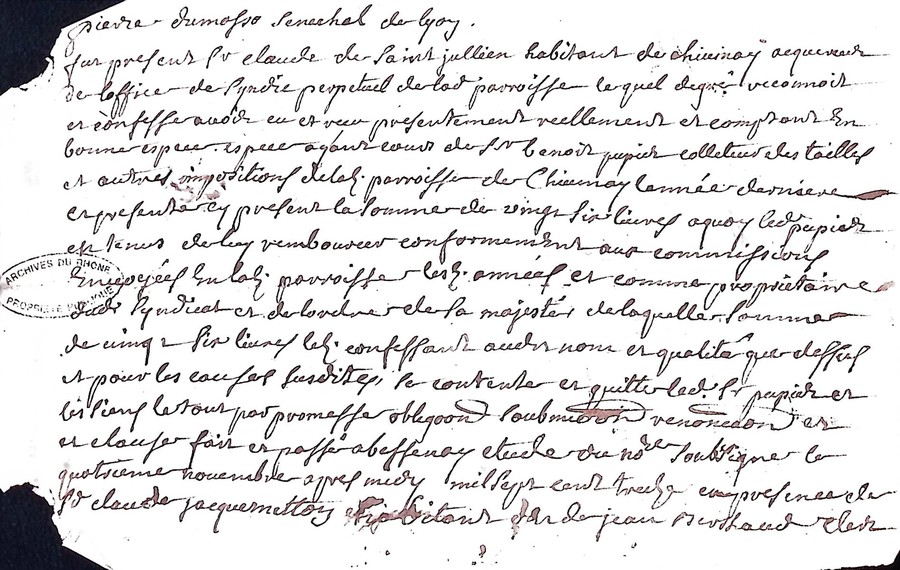 pierre dumosso senechal de lyon.
fut present Sr claude de Saint jullien habitant de chiuinaÿ acquereur
de loffice de Syndic perpetuel de lad parroisse lequel degré reconnoit
et confesse auoir eu et receu presentement reellement et comptant En
bonne espece espece aÿant cours de Sr benoit papier collecteur des tailles
et autres impositions delad. parroisse de Chiuinay lannée derniere
et presente cy present la somme de vingt six liures a quoy led papier
est tenu de luy rembourcer conformement aux commissions
Enuoÿeés En lad. parroisse lesd. années et comme proprietaire
dudt Syndicat et de lordre de Sa majesté, de laquelle Somme
de vingt Six liures led. confessant audit nom et qualité que dessus
et pour les causes Susdites, Se contente et quitte led. Sr papier et
les siens le tout par promesse obligaon Soubmission renonciaon et
et clause fait et passé a bessenay etude du nore Soubsigne le
quatrieme nouembre apres midy mil sept cent treize en presence de
Sr claude jacquemetton et de jean Berthaud clerc
ARCHIVES DU RHONE
PROPRIETE PUBLIQUE